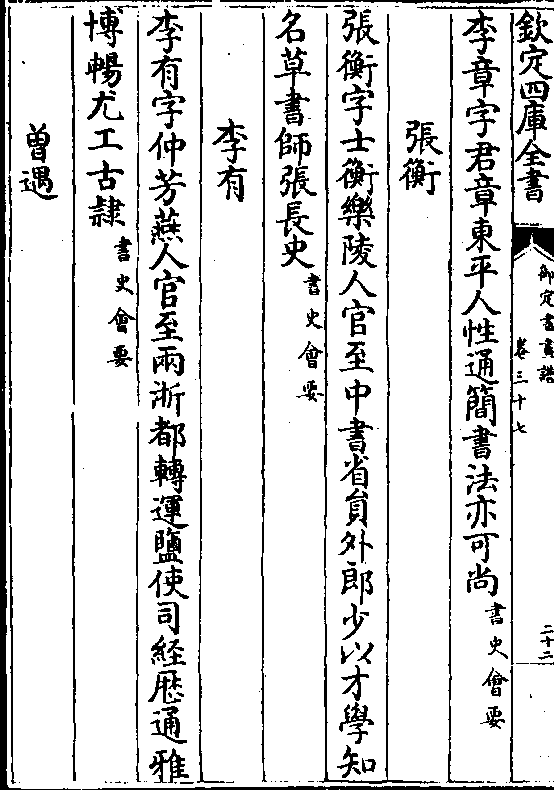 欽定四庫全書
御定書畫譜
卷三十七
二十二
李章字君章東平人性通簡書法亦可尚書史會要
張衡
張衡字士衡樂陵人官至中書省員外郎少以才學知
名草書師張長史書史會要
李有
李有字仲芳燕人官至兩浙都轉運鹽使司經歴通雅
博暢尤工古隸書史會要
曾遇